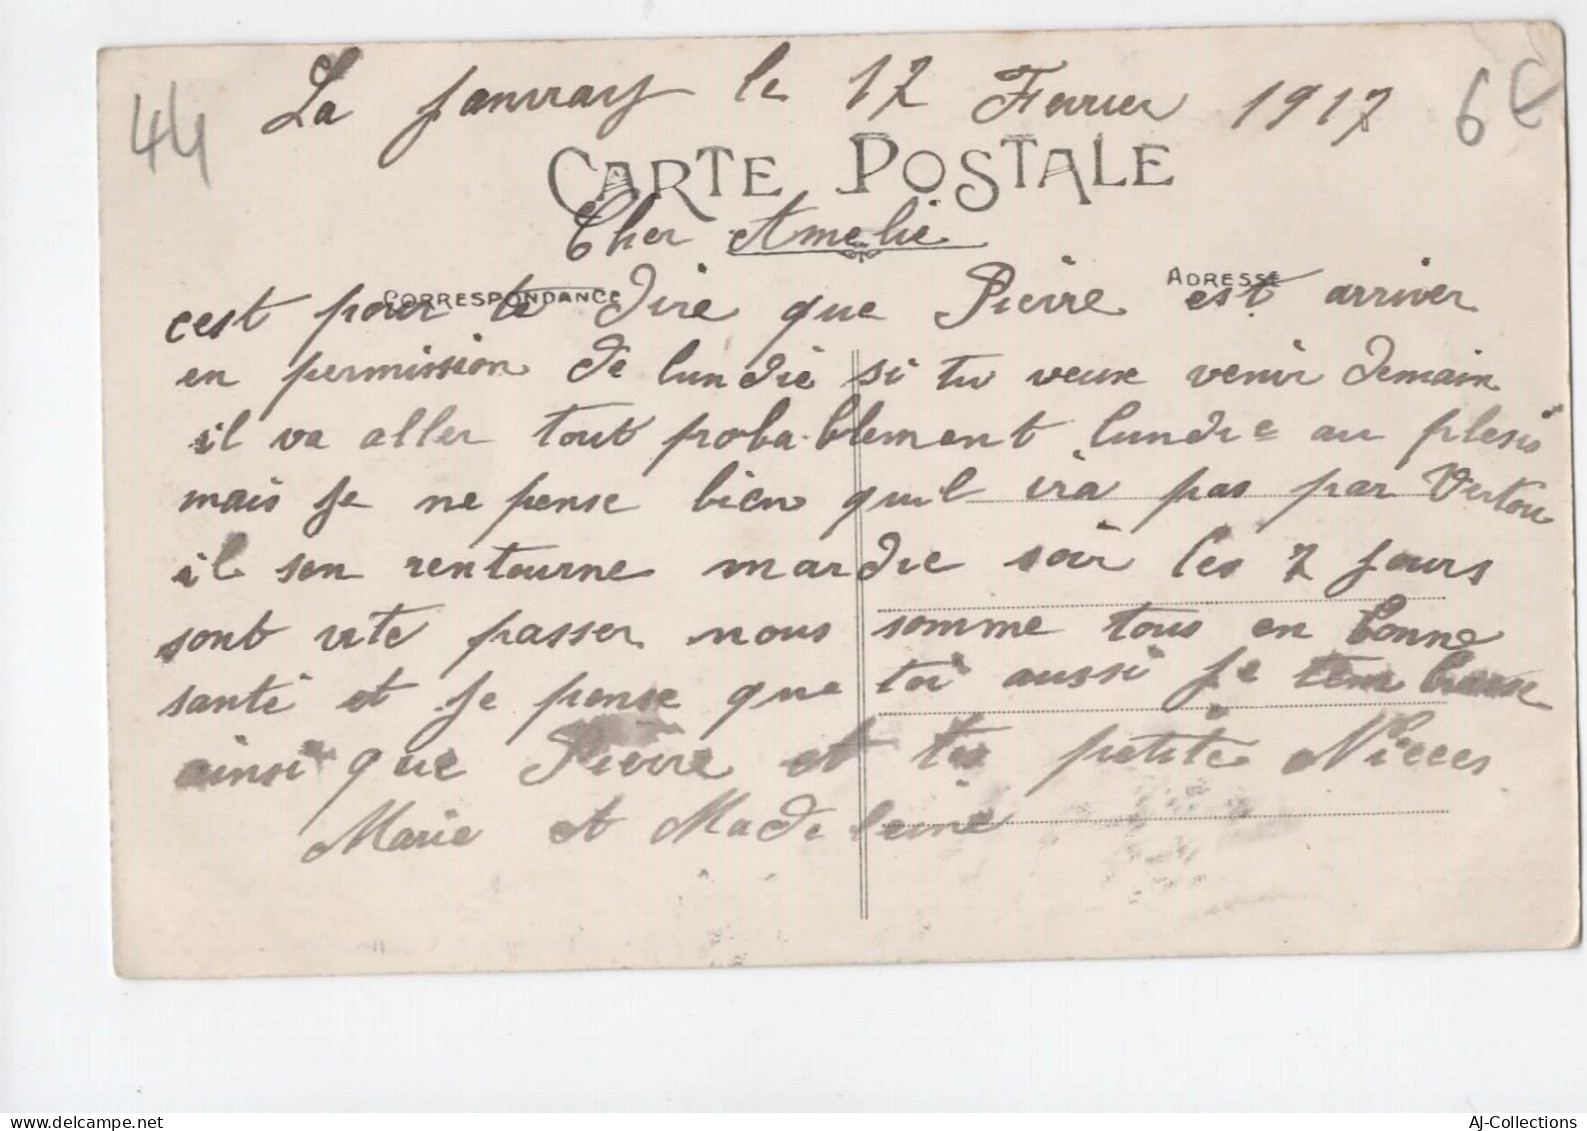 44
La Janvray le 17 Fevrier 1917
6€
CARTE POSTALE
Cher Amelie
CORRESPONDANCE
ADRESSE
cest pour te dire que Pierre est arriver
en permission de lundie si tu veux venir demain
il va aller tout probablement lundie au plesis
mais je ne pense bien quil ira pas par Vertou
il sen rentourne mardie soir les 7 jours
sont vite passer nous somme tous en bonne
santé et je pense que toi aussi je tembrasse
ainsi que Pierre et tes petite Nieces
Marie et Madeleine
AJ-Collections
delcampe.net